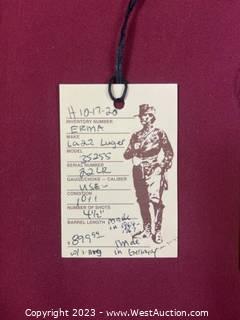 H 10-17-20
INVENTORY NUMBER
ERMA
MAKE
La22 Luger
MODEL
25255
SERIAL NUMBER
22LR
GAUGE/CHOKE - CALIBER
USE-
CONDITION
10+1
NUMBER OF SHOTS
4½"
BARREL LENGTH
made
in
$899.99
w/1 mag
made
in Germany
Copyright 2023 - www.WestAuction.com